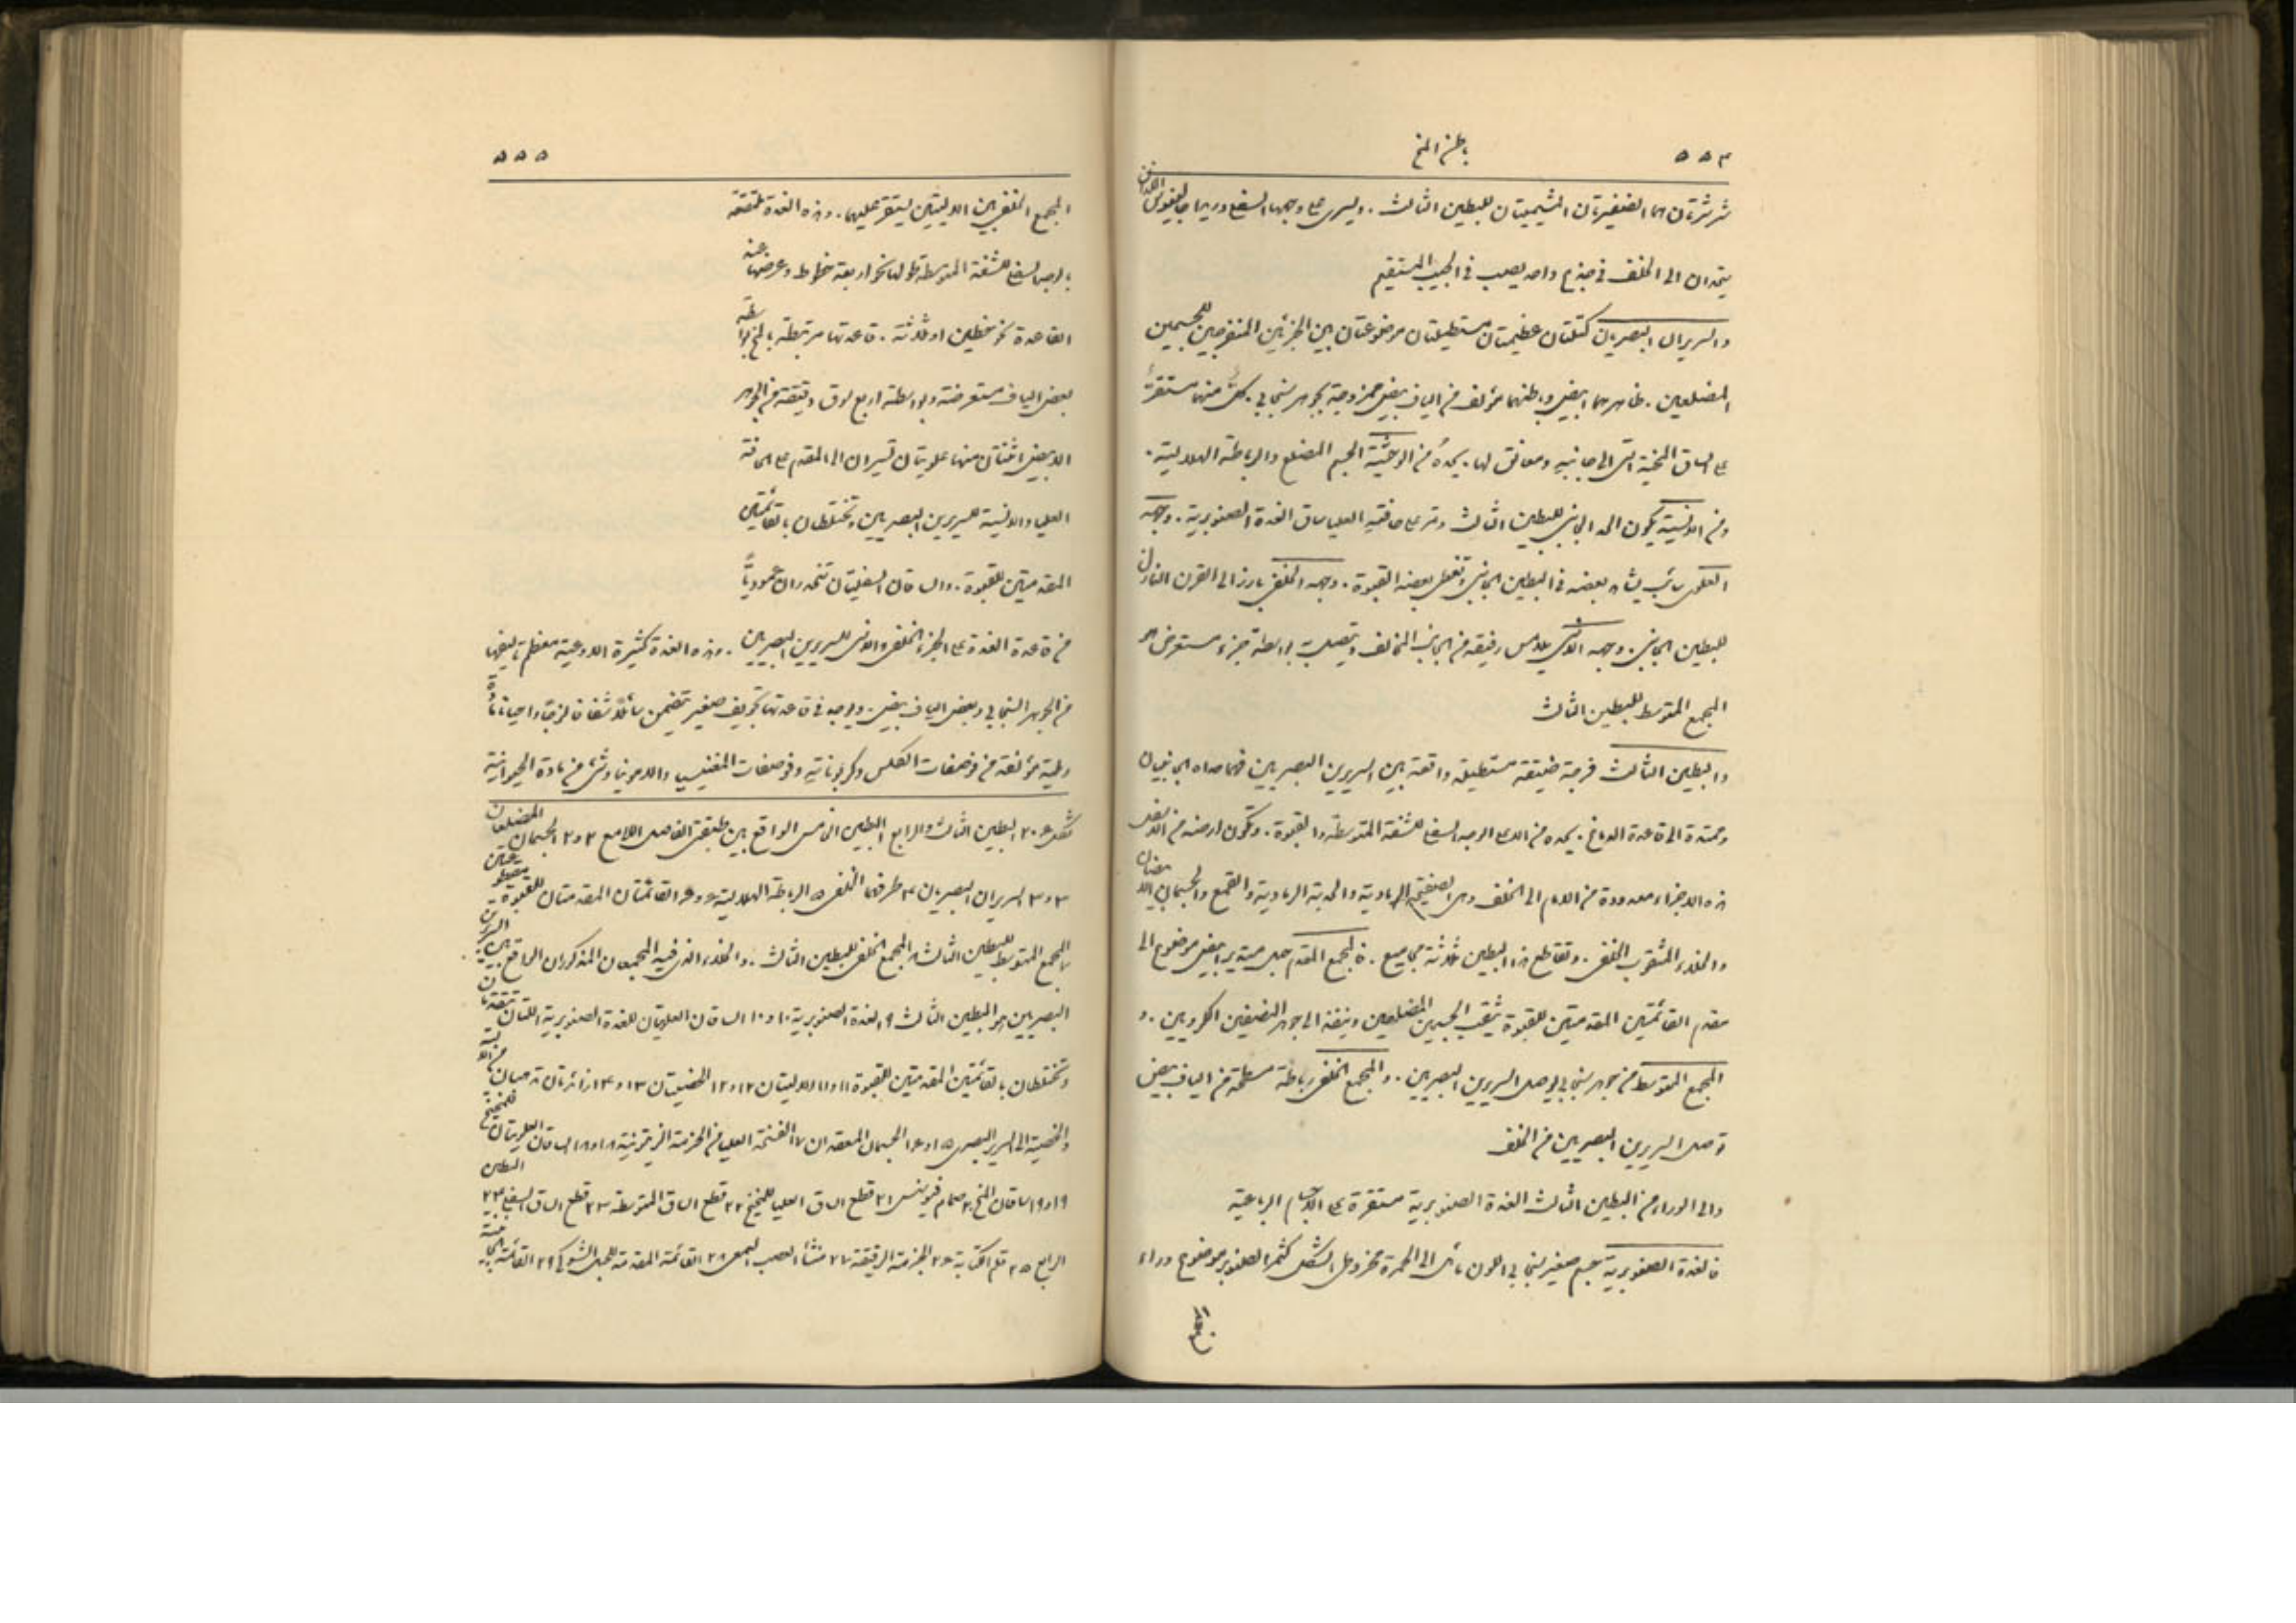 ٥٥٤ باطن المخ
شرشرتان هما الضفيرتان المشيميتان للبطين الثالث . ويسرى على وجهها السفلي وريدا جالينوس اللذان
يتحدان الى الخلف في جذع واحد يصب في الجيب المستقيم
والسريران البصريان كتلتان عظيمتان مستطيلتان موضوعتان بين الجزئين المنفرجين للجسمين
المضلعين . ظاهرهما ابيض وباطنهما مؤلف من الياف بيض ممزوجة بجوهر سنجابي . كلٌّ منهما مستقرٌّ
على الساق المخية التي الى جانبه ومعانق لها . يحدهُ من الوحشية الجسم المضلع والرباطة الهلالية .
ومن الانسية يكوّن الحد الجانبي للبطين الثالث وتمر على حافتهِ العليا ساق الغدة الصنوبرية . وجهه
العلوي سائب يشاهد بعضه في البطين الجانبي وتغطي بعضه القبوة . وجهه الخلفي بارز الى القرن النازل
للبطين الجانبي . ووجهه الانسي يلامس رفيقه من الجانب المخالف ويتصل به بواسطة جزء مستعرض هو
المجمع المتوسط للبطين الثالث
والبطين الثالث فرجة ضيقة مستطيلة واقعة بين السريرين البصريين فهما حداه الجانبيان
وممتدة الى قاعدة الدماغ . يحده من الاعلى الوجه السفلي للشقة المتوسطة والقبوة . وتكوّن ارضه من الاسفل
هذه الاجزاء معدودة من الامام الى الخلف وهي الصفيحة الرمادية والحدبة الرمادية والقمع والجسمان الابيضان
والخلاء المثقوب الخلفي . وتقاطع هذا البطين ثلاثة مجاميع . فالمجمع المقدم حبل مستدير ابيض موضوع الى
مقدم القائمتين المقدمتين للقبوة يثقب الجسمين المضلعين وينفذ الى جوهر النصفين الكرويين . و
المجمع المتوسط من جوهر سنجابي يوصل السريرين البصريين . والمجمع الخلفي رباطة مسطحة من الياف بيض
توصل السريرين البصريين من الخلف
والى الوراء من البطين الثالث الغدة الصنوبرية مستقرة على الاجسام الرباعية
فالغدة الصنوبرية جسم صغير سنجابي اللون مائل الى الحمرة مخروطي الشكل كثمر الصنوبر موضوع وراء
٥٥٥
المجمع الخلفي بين الاليتين ليستقر عليهما . وهذه الغدة ملتصقة
بالوجه السفلي للشقة المتوسطة طولها نحو اربعة خطوط وعرضها عند
القاعدة نحو خطين او ثلاثة . قاعدتها مرتبطة بالمخ بواسطة
بعض الياف مستعرضة وبواسطة اربع سوق دقيقة من الجوهر
الابيض اثنتان منها علويتان تسيران الى المقدم على الحافة
العليا والانسية للسريرين البصريين وتختلطان بالقائمتين
المقدمتين للقبوة . والساقان السفليتان تنحدران عموديًّا
من قاعدة الغدة على الجزء الخلفي والانسي للسريرين البصريين . وهذه الغدة كثيرة الاوعية معظم تاليفها
من الجوهر السنجابي وبعض الياف بيض . ويوجد في قاعدتها تجويف صغير يتضمن سائلًا شفافًا لزجًا واحيانًا مادة
رملية مؤلفة من فوصفات الكلس وكربوناته وفوصفات المغنيسيا والامونيا وشيء من مادة الحيوانية
البطين الثالث والرابع البطين الخامس الواقع بين طبقتي الفاصل اللامع ٢ و٢ الجسمان المضلعان
٣ و٣ السريران البصريان ٤ طرفهما الخلفي ٥ الرباطة الهلالية ٦ و٦ القائمتان المقدمتان للقبوة مقطوعتين
٧ المجمع المتوسط للبطين الثالث ٨ المجمع الخلفي للبطين الثالث . والخلاء الذي فيه المجمعان المذكوران الواقع بين السريرين
البصريين هو البطين الثالث ٩ الغدة الصنوبرية ١٠ و١٠ الساقان العلويتان للغدة الصنوبرية اللتان تتقدمان
وتختلطان بالقائمتين المقدمتين للقبوة ١١ و١١ الاليتان ١٢ و١٢ الخصيتان ١٣ و١٤ زائدتان تذهبان من الالية
والخصية الى السرير البصري ١٥ و١٦ الجسمان المعقدان ١٧ الفتحة العليا من الحزمة الزيتونية ١٨ و١٨ الساقان العلويتان للمخيخ
١٩ و١٩ ساقان المخ ٢٠ صمام فيوسنس ٢١ قطع الساق العليا للمخيخ ٢٢ قطع الساق المتوسطة ٢٣ قطع الساق السفلى ٢٤ البطين
الرابع ٢٥ قلم الكتابة ٢٦ الحزمة الرقيقة ٢٧ منشأ العصب السمعي ٢٨ القائمة المقدمة للحبل الشوكي ٢٩ القائمة الجانبية